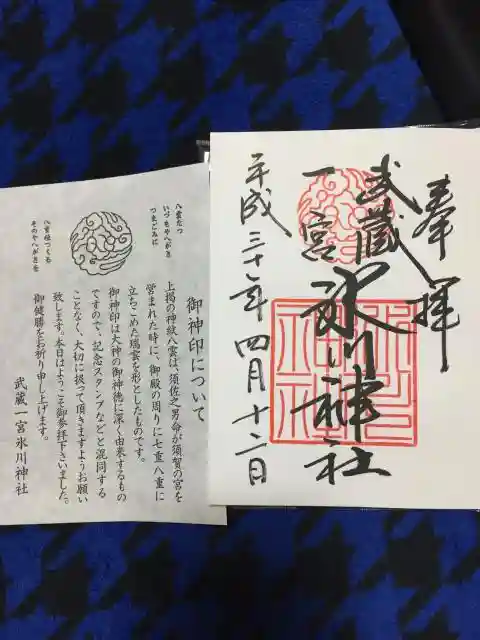 奉拝
武蔵
一宮
氷川神社
平成三十一年四月十二日
氷川神社
八雲たつ
いづもやへがき
つまごみに
八重垣つくる
そのやへがきを
御神印について
上掲の神紋八雲は、須佐之男命が須賀の宮を
営まれた時に、御殿の周りに七重八重に
立ちこめた瑞雲を形としたものです。
御神印は大神の御神徳に深く由来するもの
ですので、記念スタンプなどと混同する
ことなく、大切に扱って頂きますようお願い
致します。本日はようこそ御参拝下さいました。
御健勝をお祈り申し上げます。
武蔵一宮氷川神社